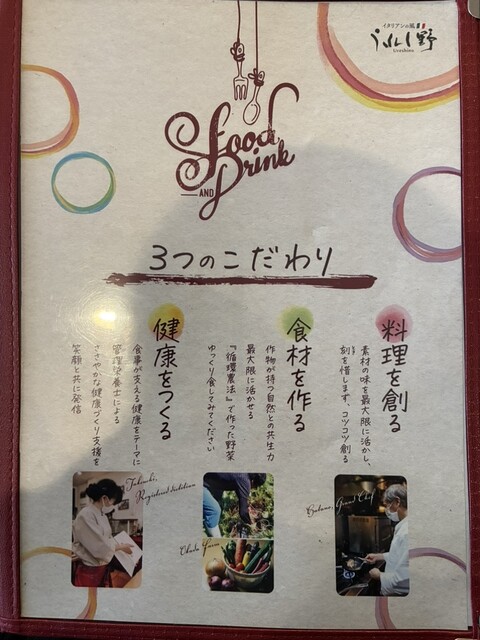 イタリアンの風
うれし野
Ureshino
Food
AND
Drink
3つのこだわり
料理を創る
素材の味を最大限に活かし、
刻を惜します、コツコツ創る
食材を作る
作物が持つ自然との共生力
最大限に活かせる
『循環農法』で作った野菜
ゆっくり食してみてください
健康をつくる
食事が支える健康をテーマに
管理栄養士による
ささやかな健康づくり支援を
笑顔と共に発信
Takeuchi,
Registered dietitian
Okada Farm
Grand Chef